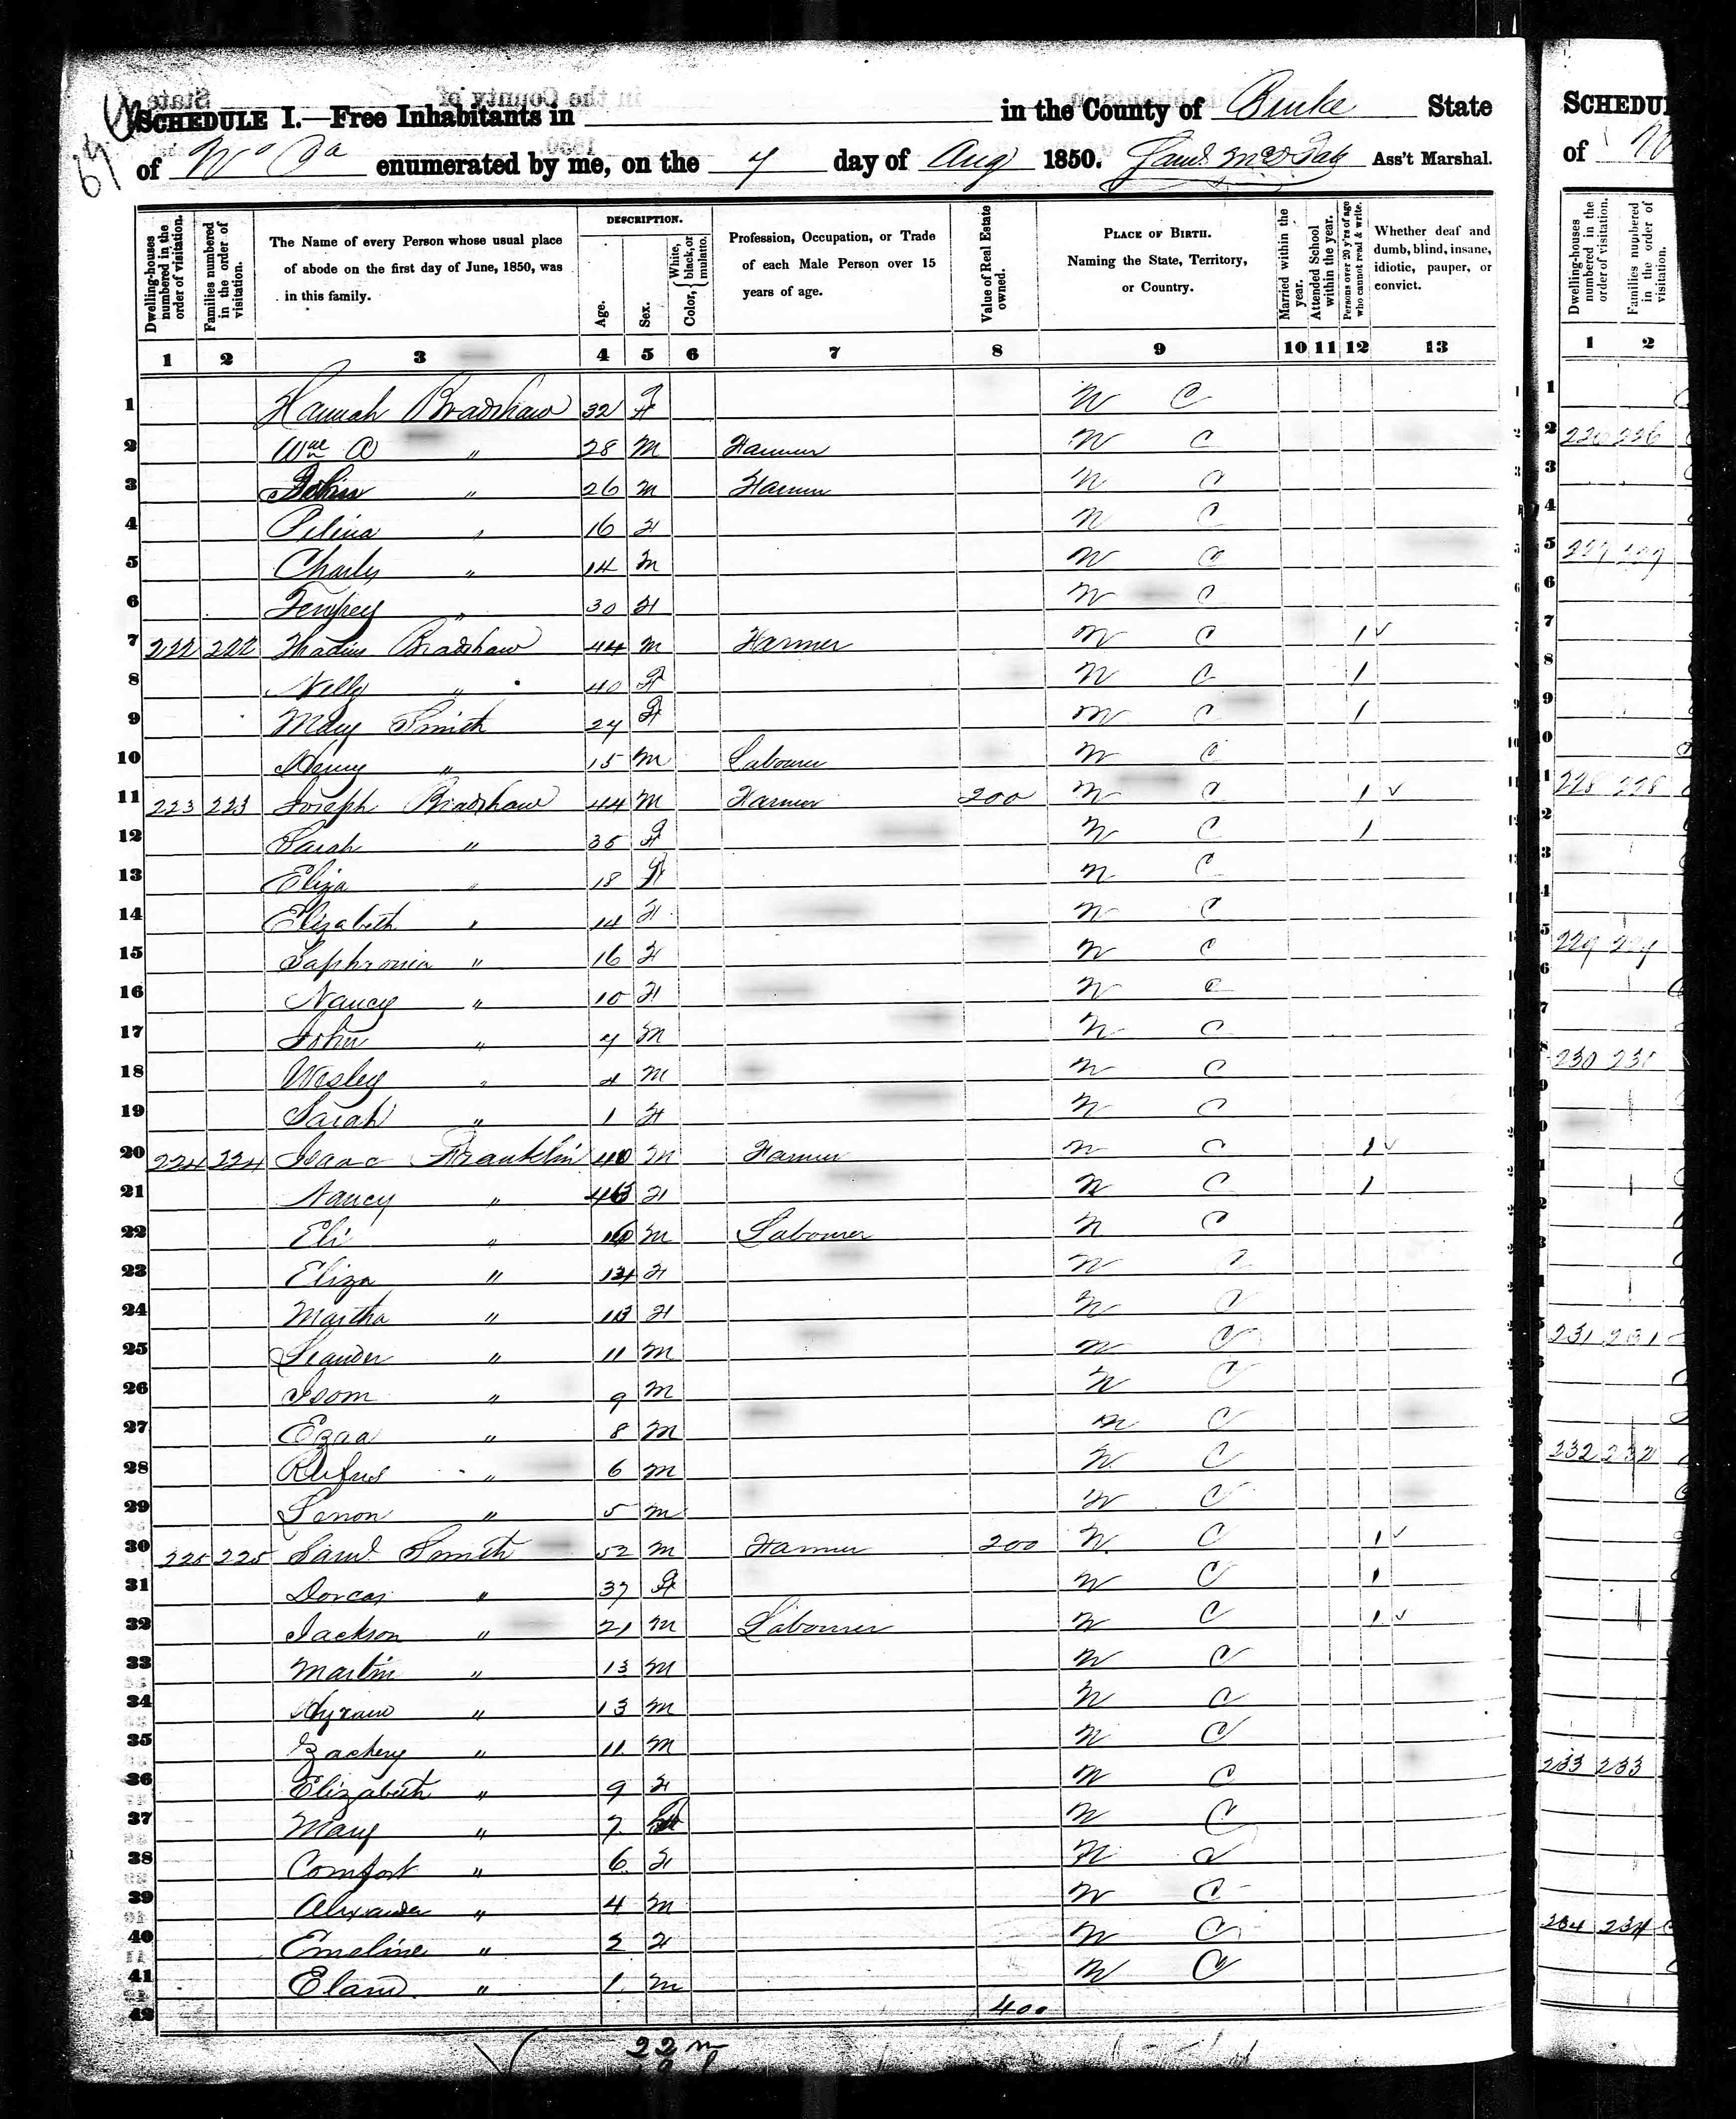 SCHEDULE I.—Free Inhabitants in in the County of Burke State
of No Ca enumerated by me, on the 7 day of Aug 1850. Ass't Marshal.
Dwelling-houses numbered in the order of visitation.
Families numbered in the order of visitation.
The Name of every Person whose usual place of abode on the first day of June, 1850, was in this family.
DESCRIPTION.
Age.
Sex.
Color, { White, black, or mulatto.
Profession, Occupation, or Trade of each Male Person over 15 years of age.
Value of Real Estate owned.
PLACE OF BIRTH. Naming the State, Territory, or Country.
Married within the year.
Attended School within the year.
Persons over 20 y'rs of age who cannot read & write.
Whether deaf and dumb, blind, insane, idiotic, pauper, or convict.
1 2 3 4 5 6 7 8 9 10 11 12 13
1 Hannah Bradshaw 32 F N C
2 Wm A " 28 M Farmer N C
3 John " 26 M Farmer N C
4 Pelina " 16 F N C
5 Charly " 14 M N C
6 Tempey " 30 F N C
7 222 222 Thadius Bradshaw 44 M Farmer N C 1 ✓
8 Nelly " 40 F N C 1
9 Mary Smith 27 F N C 1
10 Henry " 15 M Labourer N C
11 223 223 Joseph Bradshaw 44 M Farmer 200 N C 1 ✓
12 Sarah " 35 F N C 1
13 Eliza " 18 F N C
14 Elizabeth " 14 F N C
15 Saphronia " 16 F N C
16 Nancy " 10 F N C
17 John " 7 M N C
18 Wesley " 4 M N C
19 Sarah " 1 F N C
20 224 224 Isaac Franklin 40 M Farmer N C 1 ✓
21 Nancy " F N C 1
22 Eli " 16 M Labourer N C
23 Eliza " 14 F N C
24 Martha " 13 F N C
25 Leander " 11 M N C
26 Isom " 9 M N C
27 Ezra " 8 M N C
28 Rufus " 6 M N C
29 Lenon " 5 M N C
30 225 225 Saml Smith 52 M Farmer 200 N C 1 ✓
31 Dorcas " 37 F N C 1
32 Jackson " 21 M Labourer N C 1 ✓
33 Martin " 13 M N C
34 Hyram " 13 M N C
35 Zachery " 11 M N C
36 Elizabeth " 9 F N C
37 Mary " 7 N C
38 Comfort " 6 F N C
39 Alexander " 4 M N C
40 Emeline " 2 F N C
41 Elam " 1 M N C
42 400
22 m
SCHEDU
of N
Dwelling-houses numbered in the order of visitation.
Families numbered in the order of visitation.
1 2
226 226
227 227
228 228
229 229
230 230
231 231
232 232
233 233
234 234